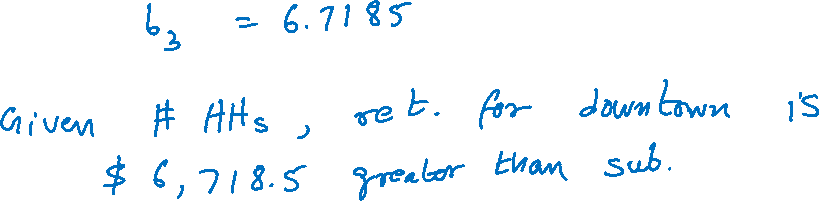 b3 = 6.7185
Given # HHs, ret. for downtown is
$ 6,718.5 greater than sub.